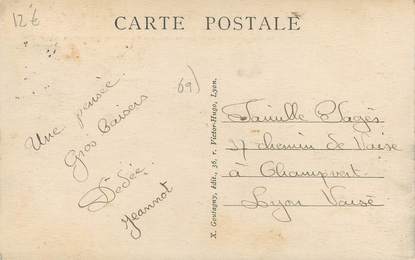 12€
CARTE POSTALE
69)
Une pensée
Gros baisers
Dédée
Jeannot
X. Goutagny, édit., 38, r. Victor-Hugo, Lyon.
Famille Plagès
37 chemin de Vaise
à Champvert
Lyon Vaise